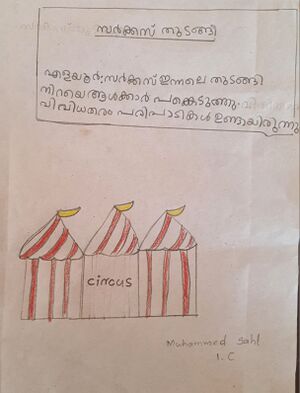 സർക്കസ് തുടങ്ങി
എളയൂർ: സർക്കസ് ഇന്നലെ തുടങ്ങി
നിറയെ ആൾക്കാർ പങ്കെടുത്തു.
വിവിധതരം പരിപാടികൾ ഉണ്ടായിരുന്നു
circus
Muhammed Sahl
1. C